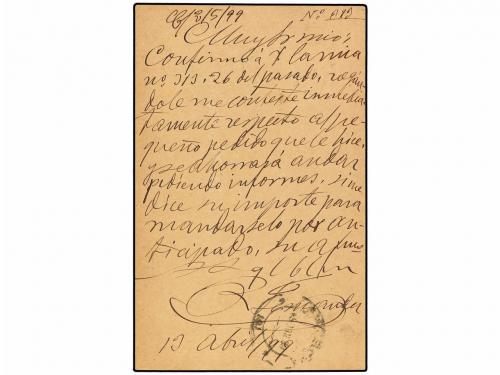 C/2/5/99 Nº
Muy sr mio;
Confirmo á V la mia
nº 313. 26 del pasado, rogán
dole me conteste inmedia
tamente respecto al pe-
queño pedido que le hice,
y se ahorrará andar
pidiendo informes, si me
dice su importe para
mandárselo por an-
ticipado, su afmo
q b l m
13 Abril/99